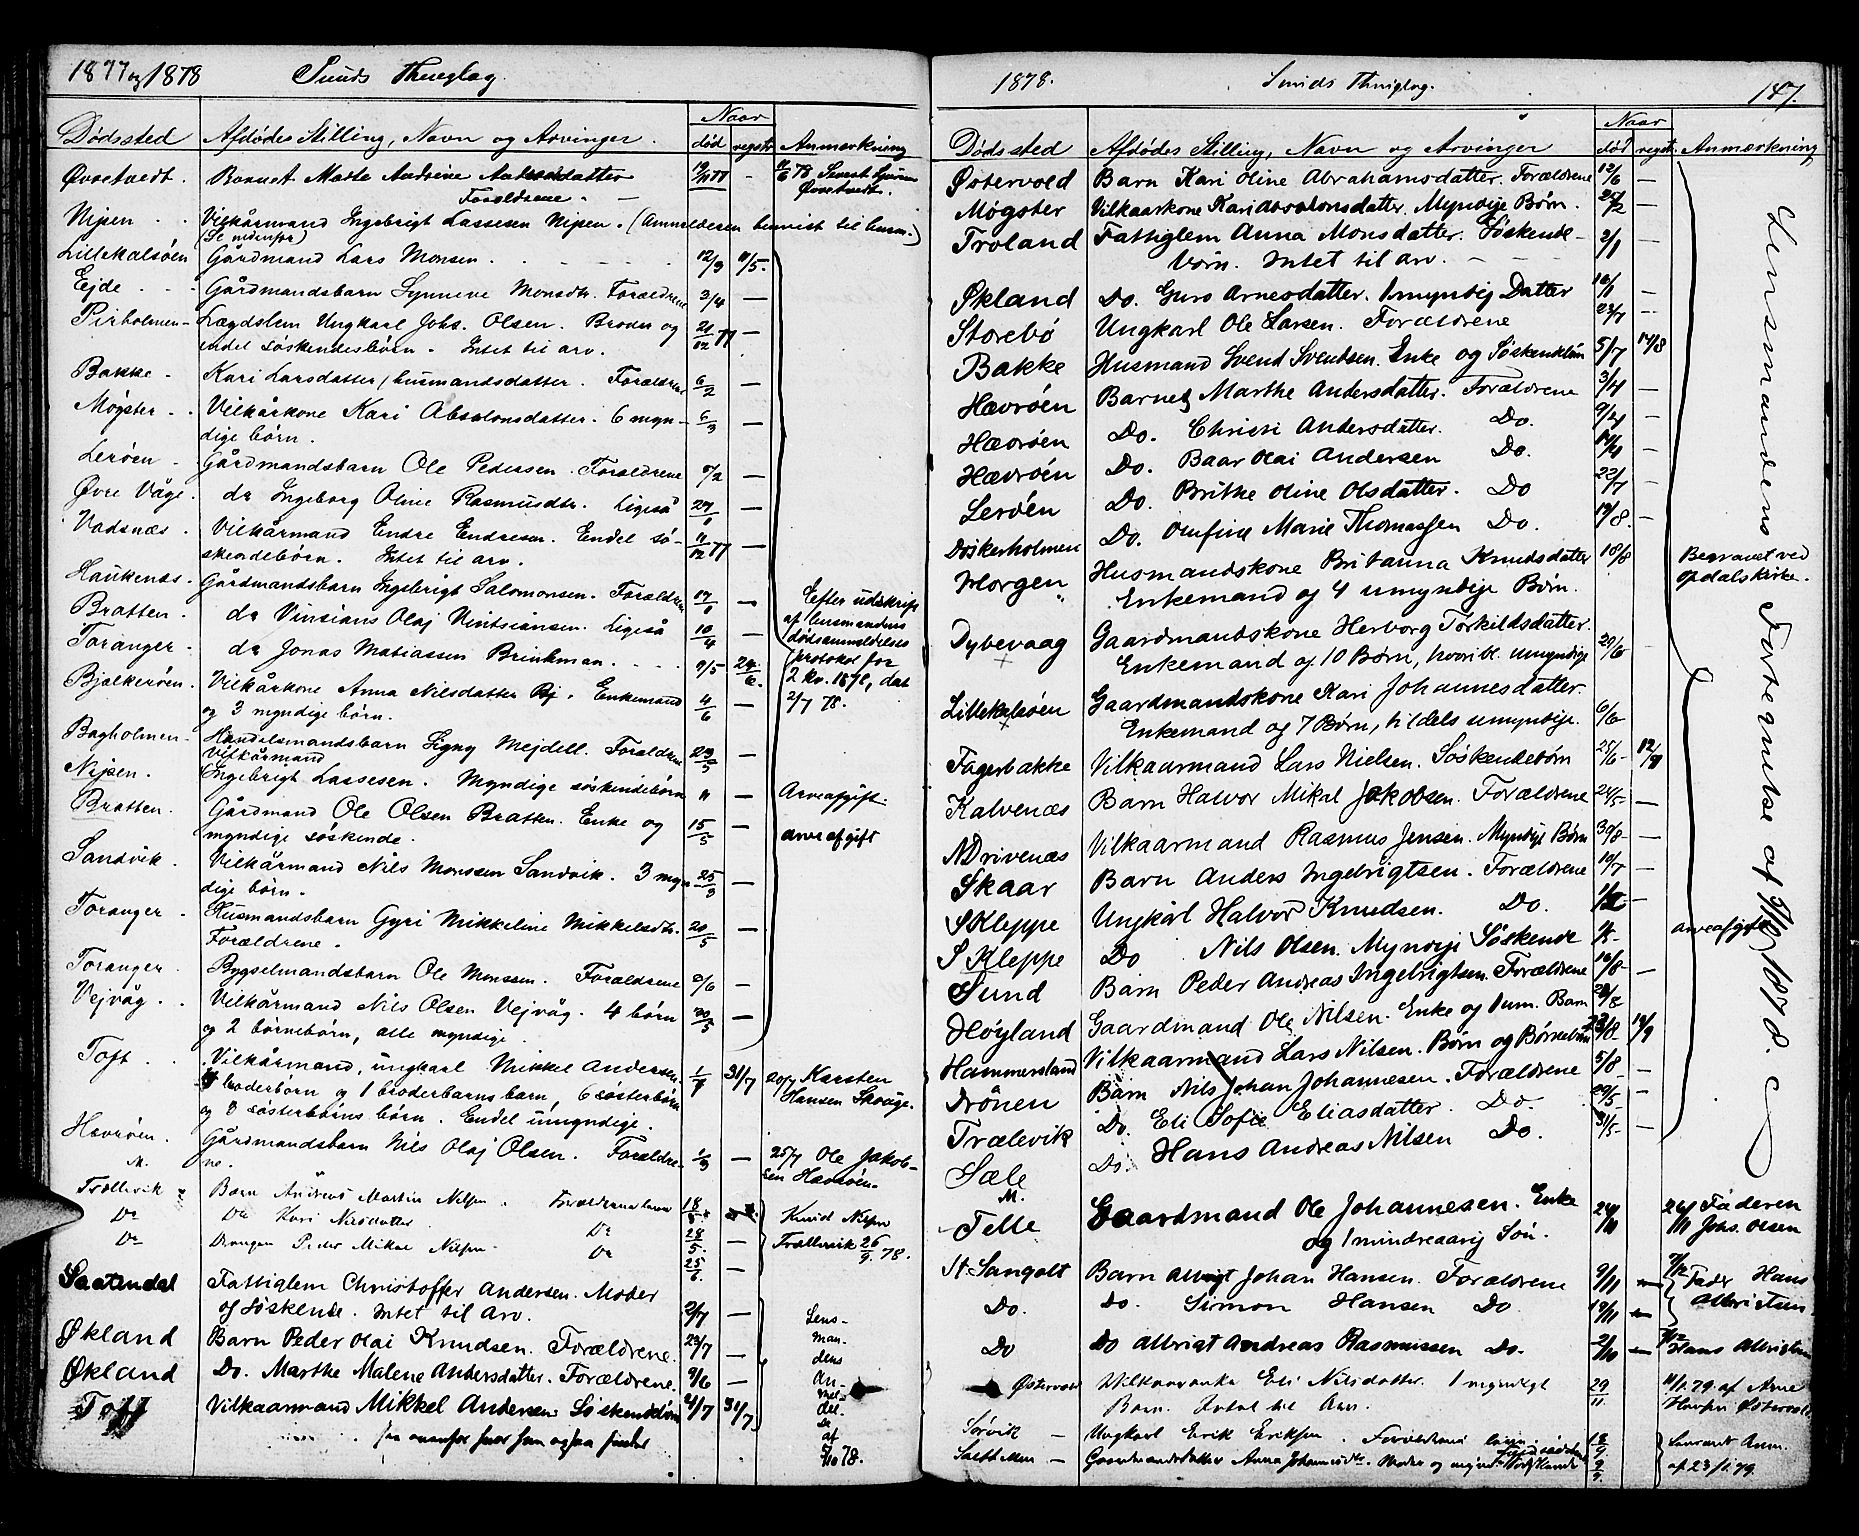 1877 og 1878 Sunds Thinglag.
Naar
Dødssted Afdødes Stilling, Navn og Arvinger. død registr. Anmærkning
Øvretvedt. Barnet Marte Andrine
Forældrene. —
Nipen Vilkårmand Ingebrigt Lassesen Nipen. (Anmeldelsen henvist til
(Se nedenfor)
Lillekalsøen Gårdmand Lars Monsen 12/3 11/5.
Ejde Gårdmandsbarn Synneve Monsdtr. Forældrene 3/4 —
Pirholmen Lægdslem Ungkarl Johs. Olsen. Broder og 21/12 77 —
endel søskendebørn. Intet til arv.
Bakke Kari Larsdatter, husmandsdatter. Forældrene 6/2 —
Møgster Vilkårkone Kari Absalonsdatter. 6 myn-
dige børn.
Lerøen Gårdmandsbarn Ole Pedersen. Forældrene /2 —
Øvre Våge. do Ingeborg Oline Rasmusdtr. Ligeså 27/1 —
Vadsnæs. Vilkårmand Endre Endresen. Endel sø- 11/12 77 —
skendebørn. Intet til arv.
Haukenæs. Gårdmandsbarn Ingebrigt Salomonsen. Forældrene 17/1 — Efter udskrift
Bratten. do Vinsians Olaj Vintsiansen. Ligeså 10/4 — af lensmandens
dødsanmeldelses
Toranger. do Jonas Matiassen Brinkman. 9/5 24/6. protokol for
2 kv. 1878, dat
Bjelkerøen. Vilkårkone Anna Nilsdatter Bj. Enkemand 4/6 — 2/7 78.
og 3 myndige børn.
Bagholmen Handelsmandsbarn Signy Mejdell. Forældrene 23/5 —
Vilkårmand
Nipen. Ingebrigt Lassesen. Myndige søskendebørn " — Arveafgift.
Bratten. Gårdmand Ole Olsen Bratten. Enke og 15/5 — arveafgift
myndige søskende.
Sandvik. Vilkårmand Nils Monssen Sandvik. 3 myn- 25/3 —
dige børn.
Toranger Husmandsbarn Gyri Mikkeline Mikkelsdtr. 20/5 —
Forældrene.
Toranger. Bygselmandsbarn Ole Monssen. Forældrene 2/6 —
Vejvåg. Vilkårmand Nils Olsen Vejvåg. 4 børn 20/5 —
og 2 børnebørn, alle myndige.
Toft Vilkårmand, ungkarl Mikkel Andersen. 1/7 31/7 20/7 Karsten
4 broderbørn og 1 broderbarns barn, 6 søsterbørn Hansen Skauge.
og 8 søsterbørns børn. Endel umyndige.
Hevrøen. Gårdmandsbarn Nils Olaj Olsen. Forældre- — 25/7 Ole Jakob-
M. ne. sen Hevrøen.
Trællevik Barn Andreas Martin Nilsen. 18/5 Knud Nilsen
Do Do Kari Nilsdatter. Do 28/5. — Trællevik 26/9. 78.
Do Drengen Peder Mikal Nilsen. Do 25/6. —
Saatendal Fattiglem Christoffer Andersen. Moder
og Søskende. Intet til Arv. 2/7 — Lens-
Økland Barn Peder Olai Knudsen. Forældrene. 23/7 — man-
dens
Økland Do. Marthe Malene Andersdatter. Forældrene. 9/6 — An-
mel-
Toft Vilkaarmand Mikkel Andersen. Søskendebørn 4/7 31/7 del-
se
af
5/10 78.
1878. Sunds Thinglag. 147.
Naar
Dødssted Afdødes Stilling, Navn og Arvinger død registr. Anmærkning
Østervold Barn Kari Oline Abrahamsdatter. Forældrene 12/6 —
Møgster Vilkaarkone Kari Absalonsdatter. Myndige Børn. 22/2 —
Troland Fattiglem Anna Monsdatter. Søskende- 2/1 —
børn. Intet til arv.
Økland Do. Guro Arnesdatter. 1 myndig Datter 16/1 —
Storebø Ungkarl Ole Larsen. Forældrene 27/7 —
Bakke Husmand Svend Svendsen. Enke og Søskendebørn 5/7 14/8
Hævrøen Barnet Marthe Andersdatter. Forældrene 3/4 —
Hævrøen Do. Christi Andersdatter. Do. 9/4 —
Hævrøen Do. Baar Olai Andersen Do. 14/4 —
Lerøen Do. Brithe Oline Olsdatter. Do 22/7 —
Doskerholmen Do. Olufine Marie Thomassen Do. 19/8. —
Horgen Husmandskone Britanna Knudsdatter 18/8 Begravet ved
Enkemand og 4 umyndige Børn. Opdals kirke.
Dybevaag Gaardmandskone Herborg Torkildsdatter. 20/6 —
Enkemand og 10 Børn, hvoribl. umyndige
Lillekalsøen Gaardmandskone Kari Johannesdatter.
Enkemand og 7 Børn, tildels umyndige. 6/6
Fagerbakke Vilkaarmand Lars Nielsen. Søskendebørn 25/6 12/9
Kalvenæs Barn Halvor Mikal Jakobsen. Forældrene 24/5 —
N Drivenæs Vilkaarmand Rasmus Jensen. Myndige Børn 30/8 —
Skaar Barn Anders Ingebrigtsen. Forældrene 10/7 —
S Kleppe Ungkarl Halvor Knudsen. Do. —
S Kleppe Do Nils Olsen. Myndige Søskende arveafgift
Sund Barn Peder Andreas Ingebrigtsen. Forældrene 16/8 —
Høyland Gaardmand Ole Nilsen. Enke og 1 um. Barn 28/8
Hammersland Vilkaarmand Lars Nilsen. Børn og Børnebørn 23/8 14/9
Drönen Barn Nils Johan Johannesen. Forældrene 5/8 —
Trælevik Do. Eli Sofie Eliasdatter. Do. 29/5 —
Sæle Do. Hans Andreas Nilsen Do. 31/5 —
M.
Lensmandens Fortegnelse af 5/10 1878.
Telle Gaardmand Ole Johannesen. Enke 24/10 26/11 Faderen
og 1 mindreaarig Søn. Johs. Olsen
St. Sangolt Barn Albrigt Johan Hansen. Forældrene 9/11 — 7/12 Fader Hans
Do. Do. Simon Hansen Do. 19/11 — Albrigtsen
Do Do Albrigt Andreas Rasmussen Do. 2/10 — 7/12 Hans Albrigtsen
Østervold Vilkaarenke Eli Nilsdatter. 1 myndigt 29/11. 11/1.79 af Arne
Barn. Intet til Arv. Østervold
Sørvik — Ungkarl Erik Eriksen. Forældrene 18/9
— Gaardmandsdatter Anna 9/9. af 23/1.79.